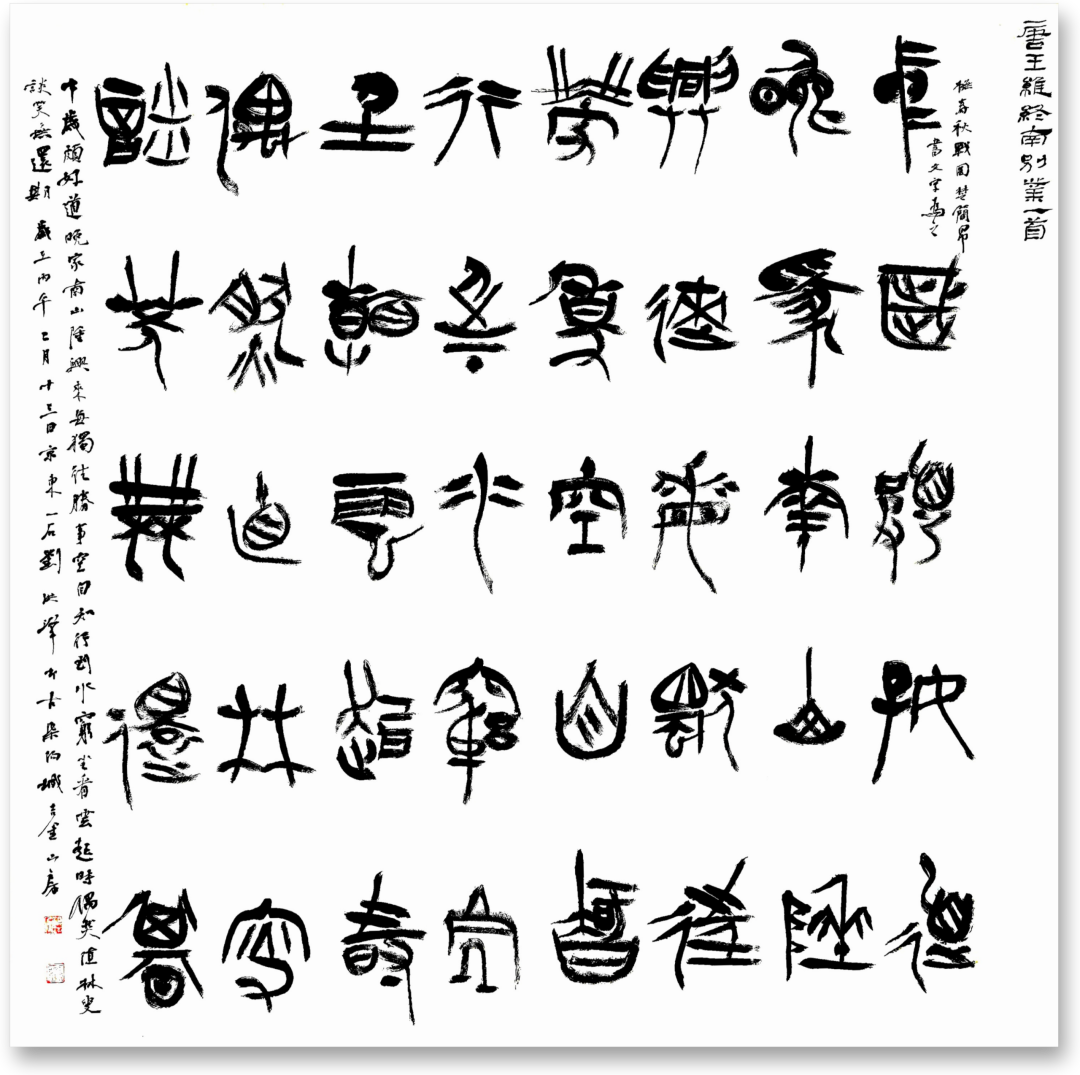 唐王維終南別業一首
擬春秋戰國楚簡帛
書文字為之
中歲頗好道
晚家南山陲
興來每獨往
勝事空自知
行到水窮處
坐看雲起時
偶然值林叟
談笑無還期
中歲頗好道晚家南山陲興來每獨往勝事空自知行到水窮坐看雲起時偶然值林叟
談笑無還期 歲在丙午正月十三日京東一石劉洪 城 金山房